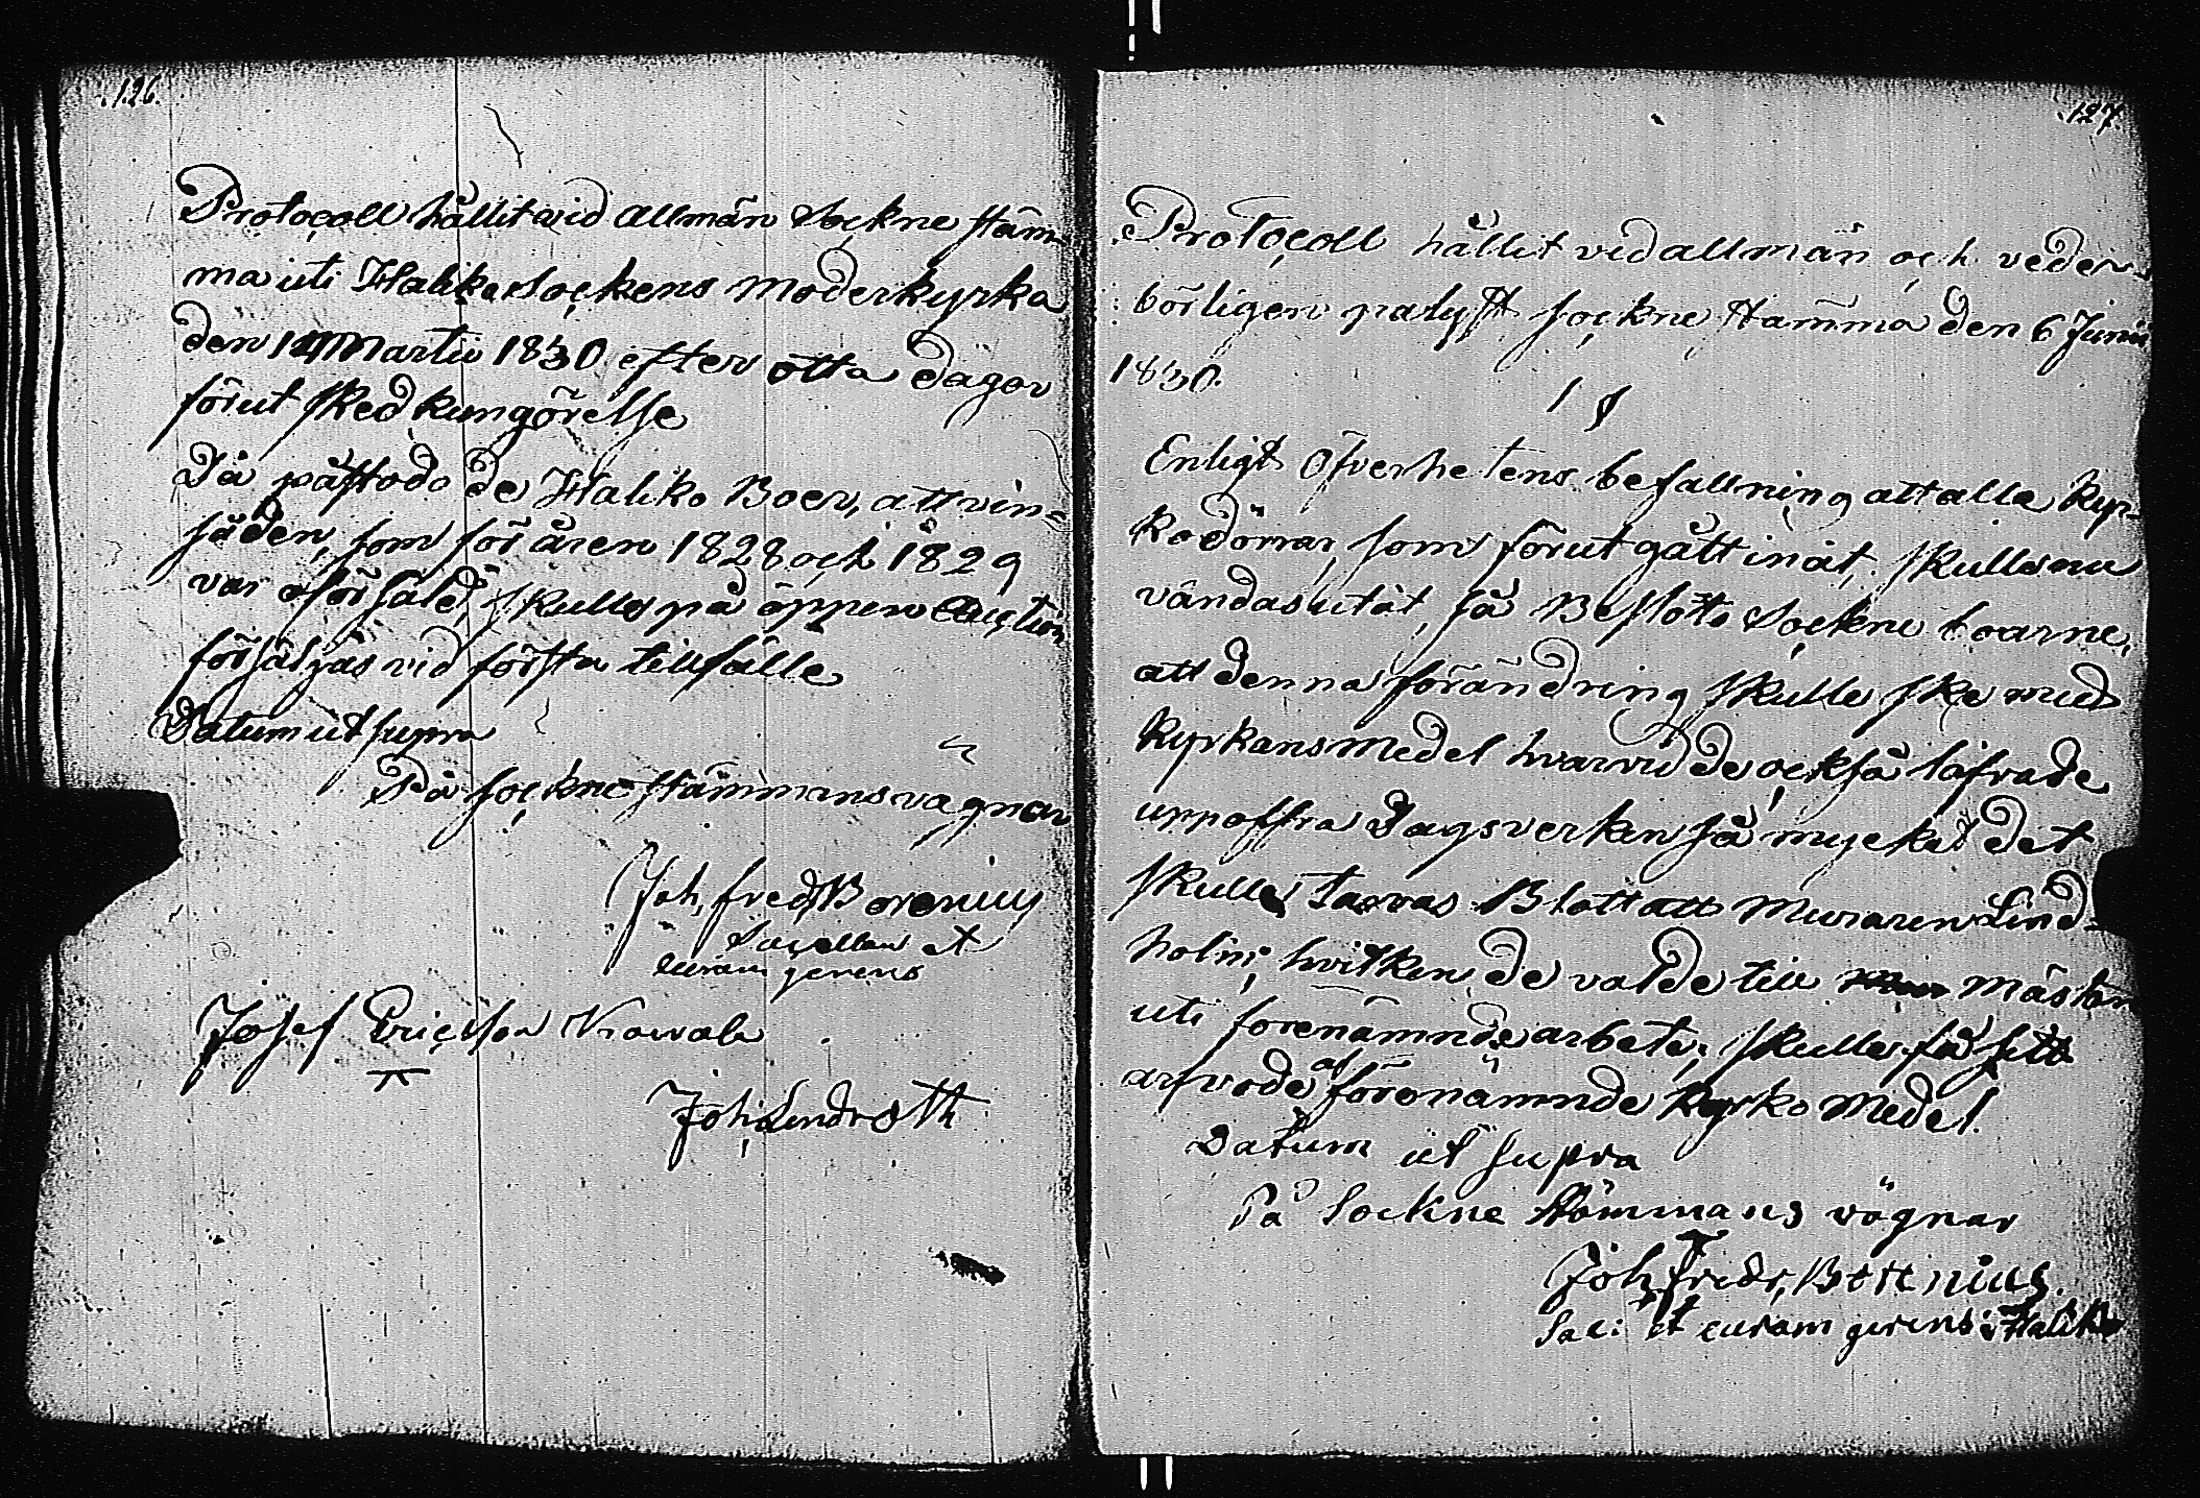 126.
Protocoll hållit vid allmän Sockne stäm-
ma uti Haliko Sockens Moderkyrka
den 14 Martii 1830 efter otta dagar
förut sked kungörelse
Då påstodo de Haliko Boer, att vin-
säden, som för åren 1828 och 1829
var oförsåld, skulle på öppen Auction
försäljas vid första tillfälle
Datum ut supra
På sockne stämmans vägnar
Joh, fred, Borenius
Sacellan et
curam gerens
Josef Ericsson
Joh: Lindroth
127.
Protocoll hållit vid allmän och veder-
börligen pålyst sockne stämma den 6 Junii
1830.
1 §
Enligt Öfverhetens befallning att alla Kyr-
kodörrar, som förut gått inåt, skulle nu
vändas utåt, så Beslöto Sockne boarne,
att denna förändring skulle ske med
Kyrkans Medel hvarvid de också låfvade
uppoffra Dagsverken så mycket det
skulle tarvas Blott att Muraren Lind-
holm; hvilken de valde till mästare
uti förenämnde arbete, skulle få sitt
arvode af förenämnde Kyrko Medel.
Datum ut supra
På Sockne stämmans vägnar
Joh, Fredr, Borenius.
Sac: et curam gerens i Haliko